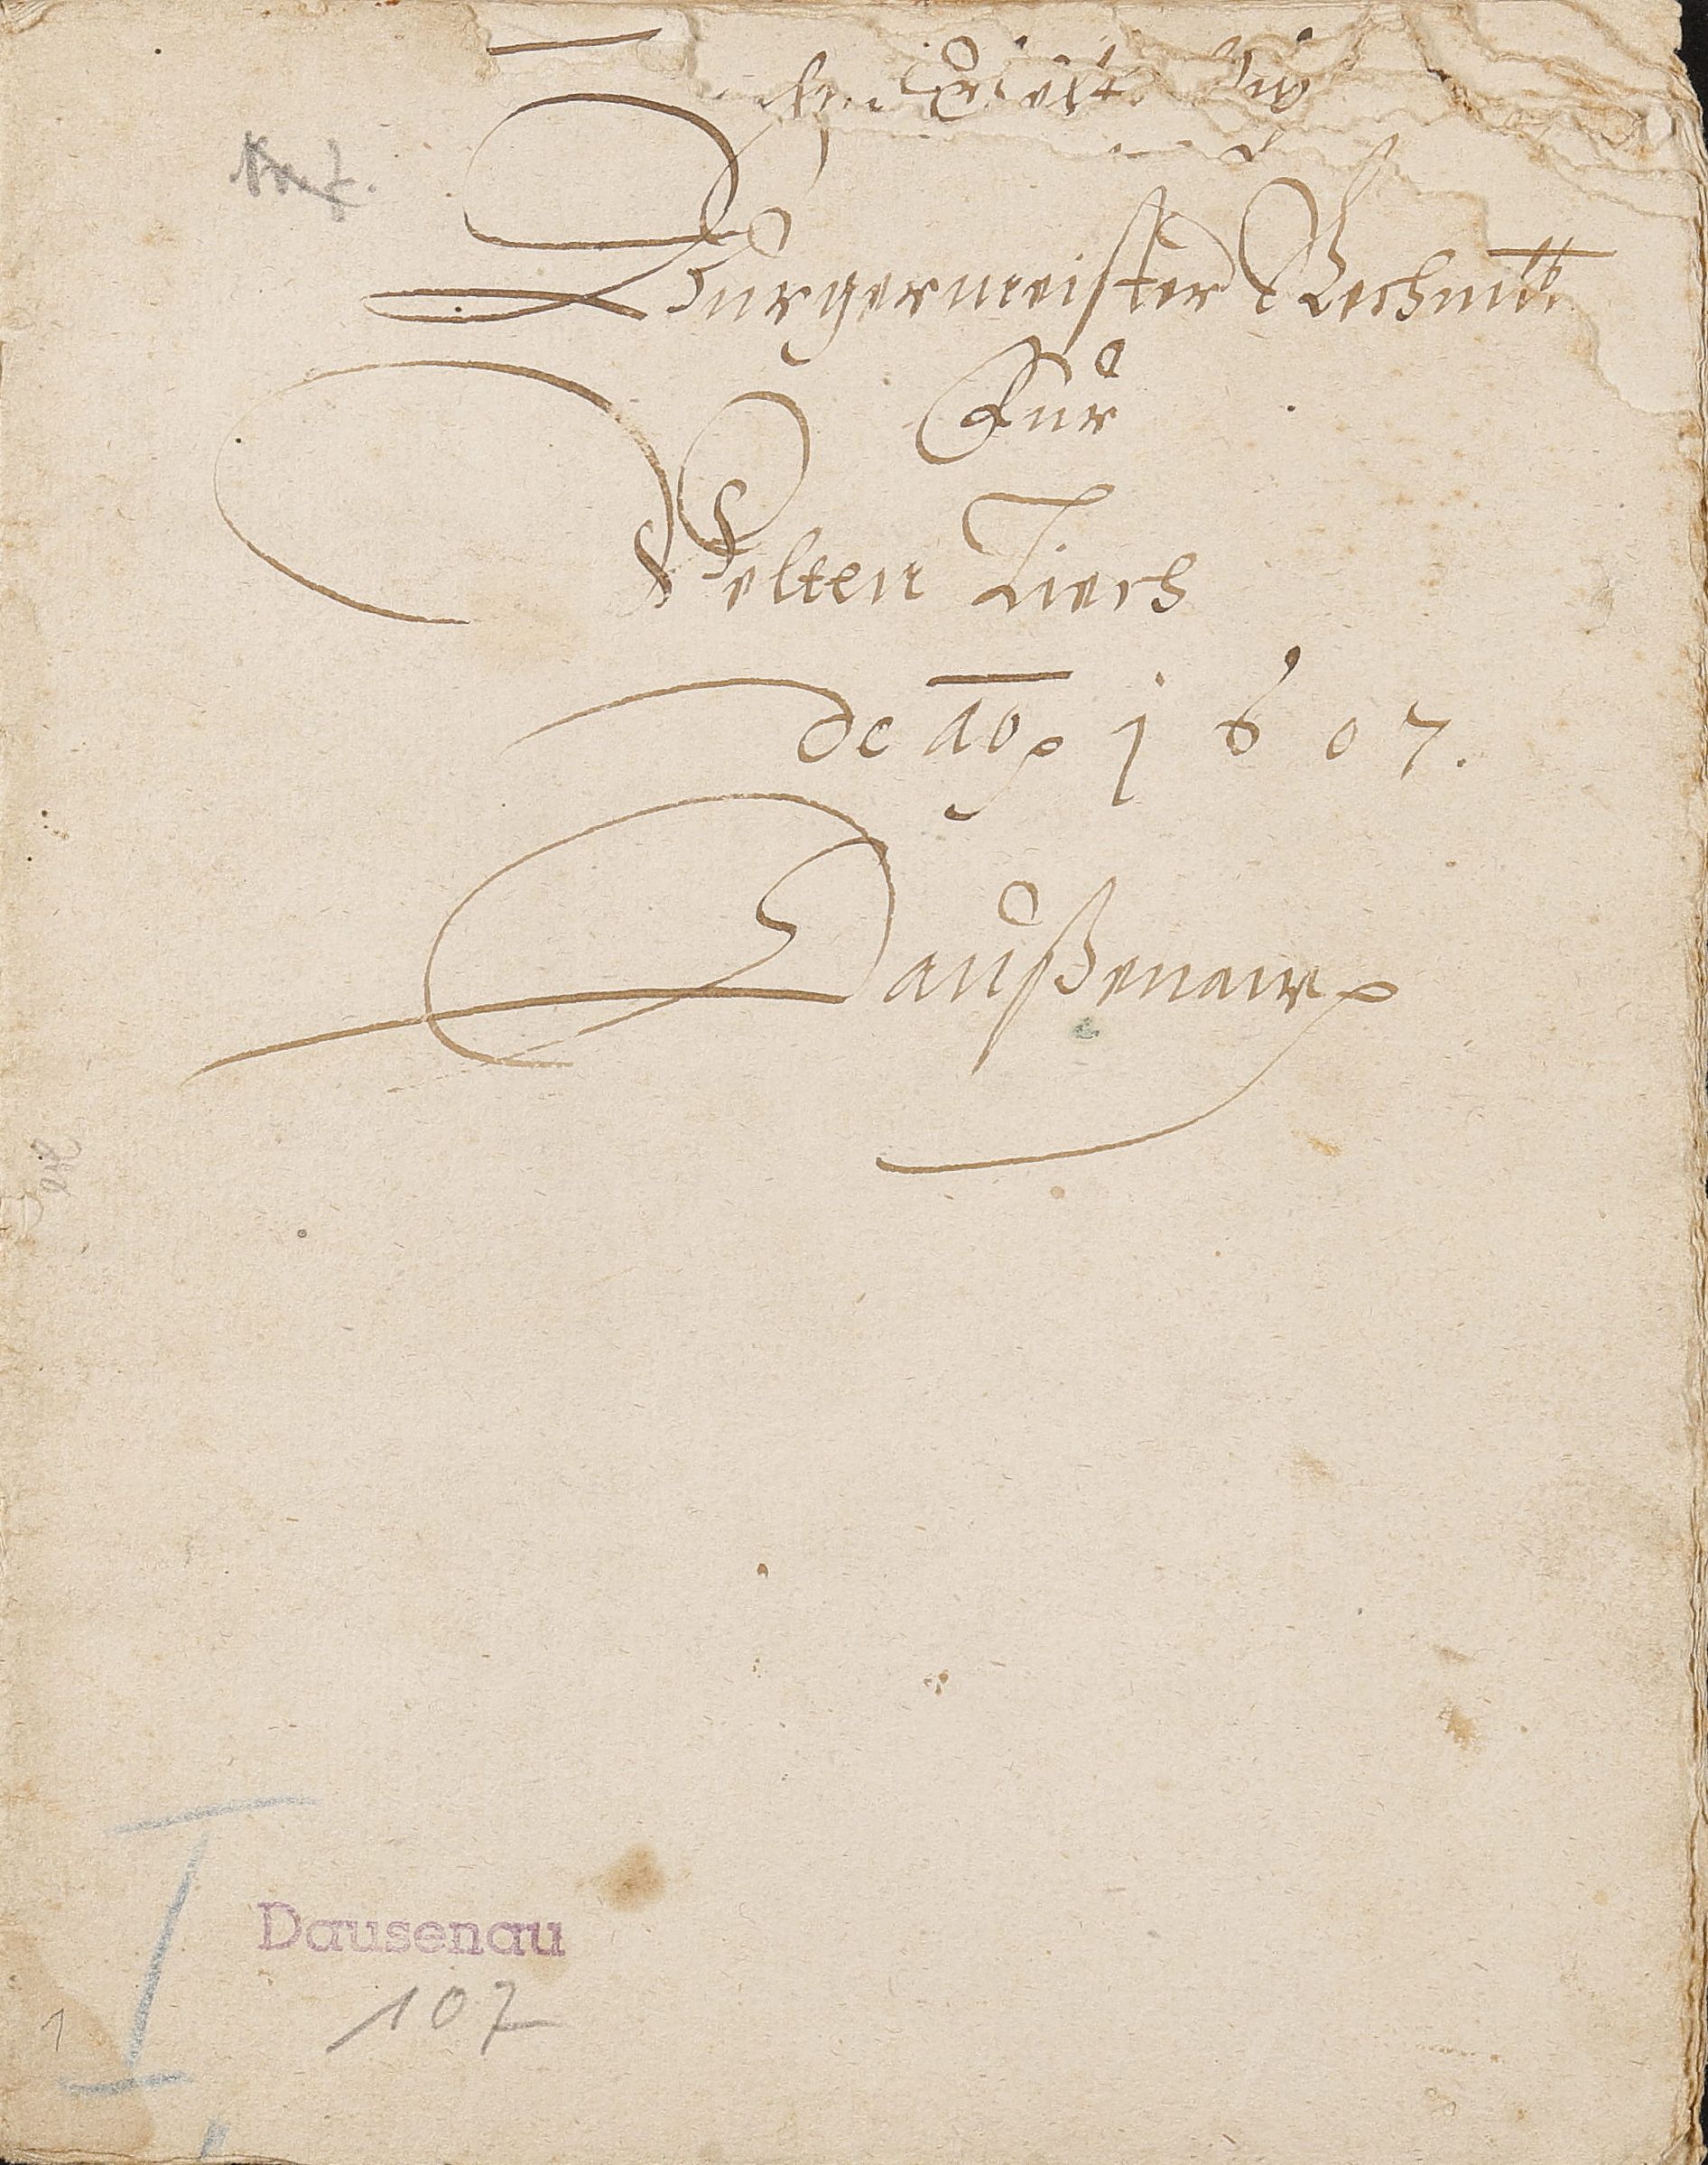 Bürgermeister Rechnu͞g
Für
Velten Zierh
de a͞o 1607.
Daußenaw
I
Dausenau
107
1